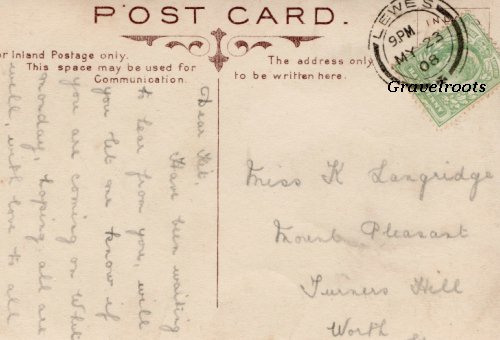 POST CARD.
For Inland Postage only.
This space may be used for
Communication.
The address only
to be written here.
LEWES
9PM
MY 23
08
Gravelroots
Dear Kit,
Have been waiting
to hear from you, will
you let me know if
you are coming on Whit
monday, hoping all are
well, with love to all
Miss K Langridge
Mount Pleasant
Turners Hill
Worth